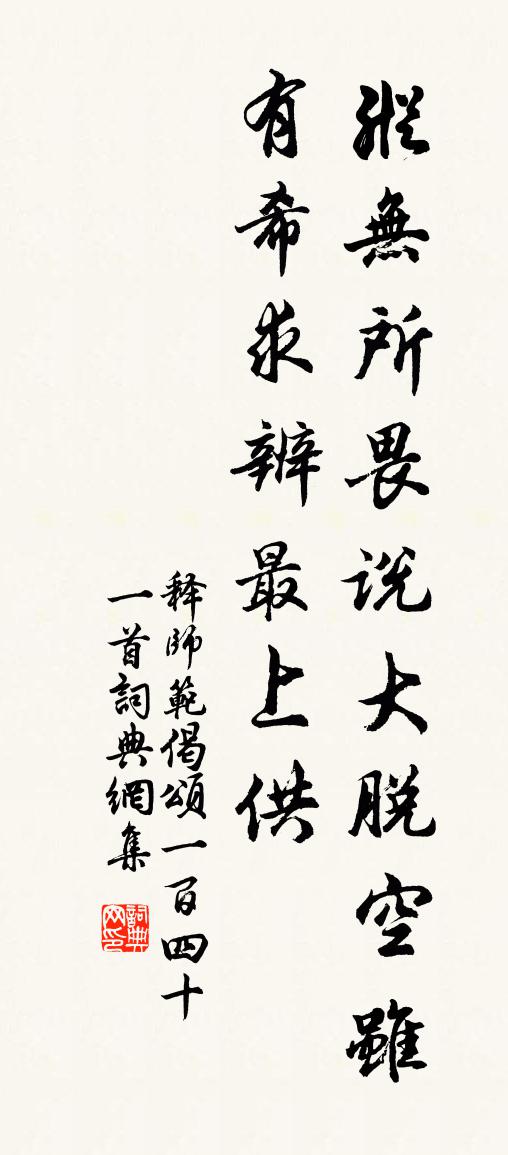 縱無所畏说大脱空雖
有希求辨最上供
释師範偈頌一百四十
一首詞典網集
詞典网印